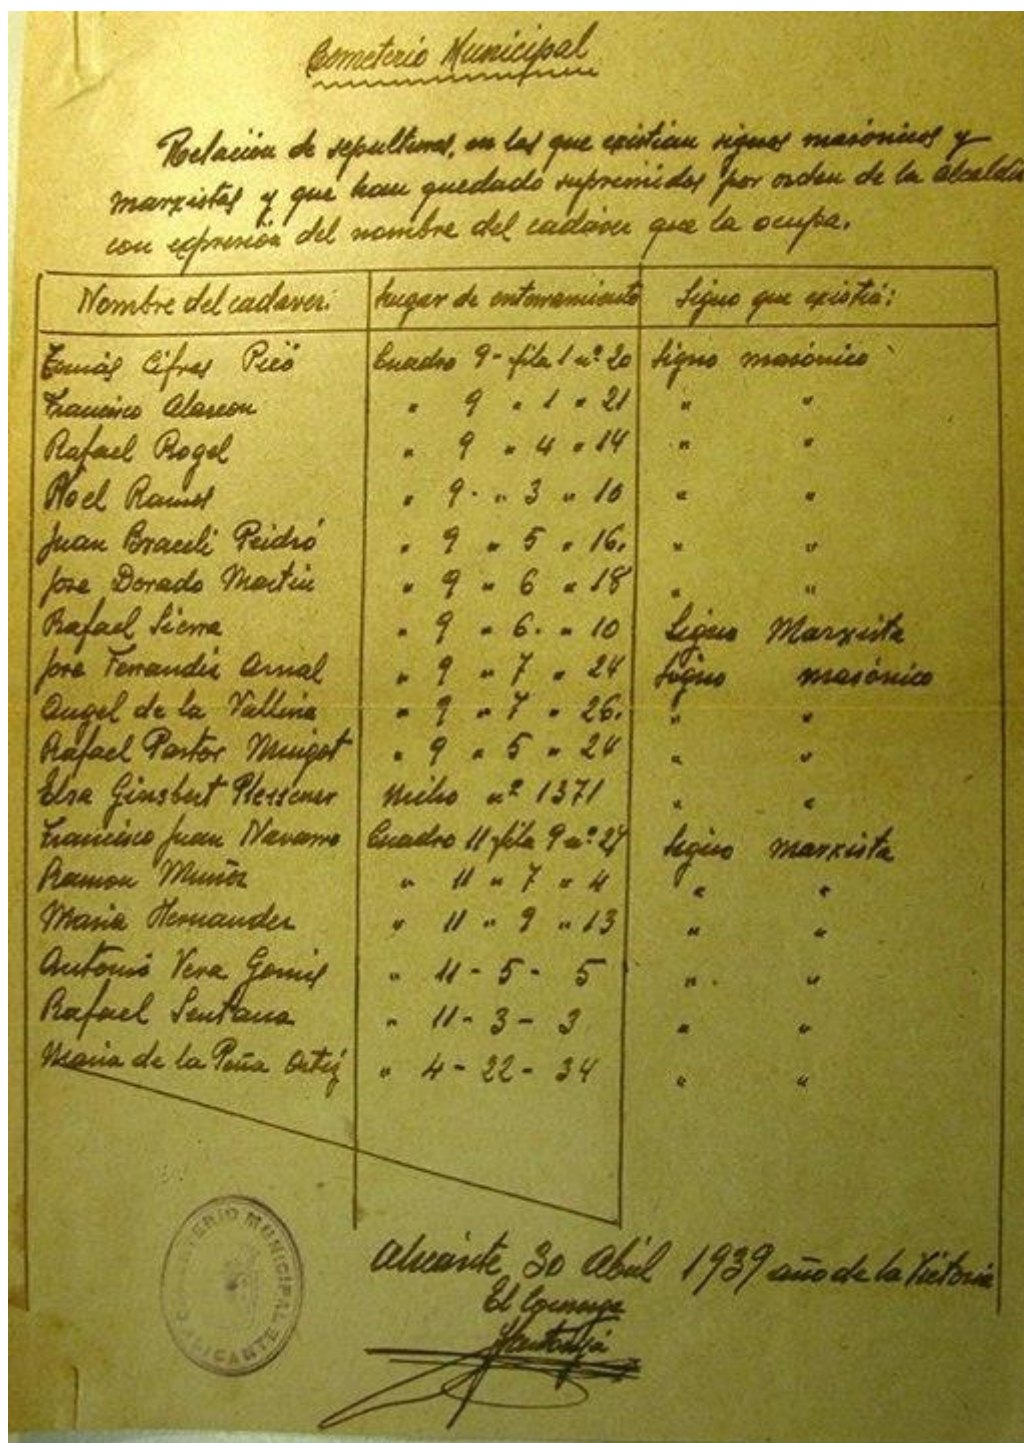 Cementerio Municipal
Relación de sepulturas, en las que existian signos masónicos y
marxistas y que han quedado suprimidos por orden de la Alcaldia
con expresión del nombre del cadáver que la ocupa.
Nombre del cadaver: Lugar de enterramiento Signo que existia:
Tomás Cifres Picó Cuadro 9 - fila 1 nº 20 Signo masónico
Francisco Alarcon " 9 " 1 " 21 " "
Rafael Rogel " 9 " 4 " 14 " "
Noel Ramos " 9 - " 3 " 10 " "
Juan Braceli Peidró " 9 " 5 " 16. " "
Jose Dorado Martin " 9 " 6 " 18 " "
Rafael Sierra " 9 " 6. " 10 Signo Marxista
Jose Ferrandiz Arnal " 9 " 7 " 24 Signo masónico
Angel de la Vallina " 9 " 7 " 26. " "
Rafael Pastor " 9 " 5 " 24 " "
Elsa Ginsbert Plessener Nicho nº 1371 " "
Francisco Juan Navarro Cuadro 11 - fila 9 nº Signo marxista
Ramon Muñoz " 11 " 7 " 4 " "
Maria Hernandez " 11 " 9 " 13 " "
Antonio Vera Gomis " 11 - 5 - 5 " "
Rafael Sentana " 11 - 3 - 3 " "
Maria de la Peña Ortiz " 4 - 22 - 34 " "
CEMENTERIO MUNICIPAL
ALICANTE
Alicante 30 Abril 1939 año de la Victoria
El Conserge